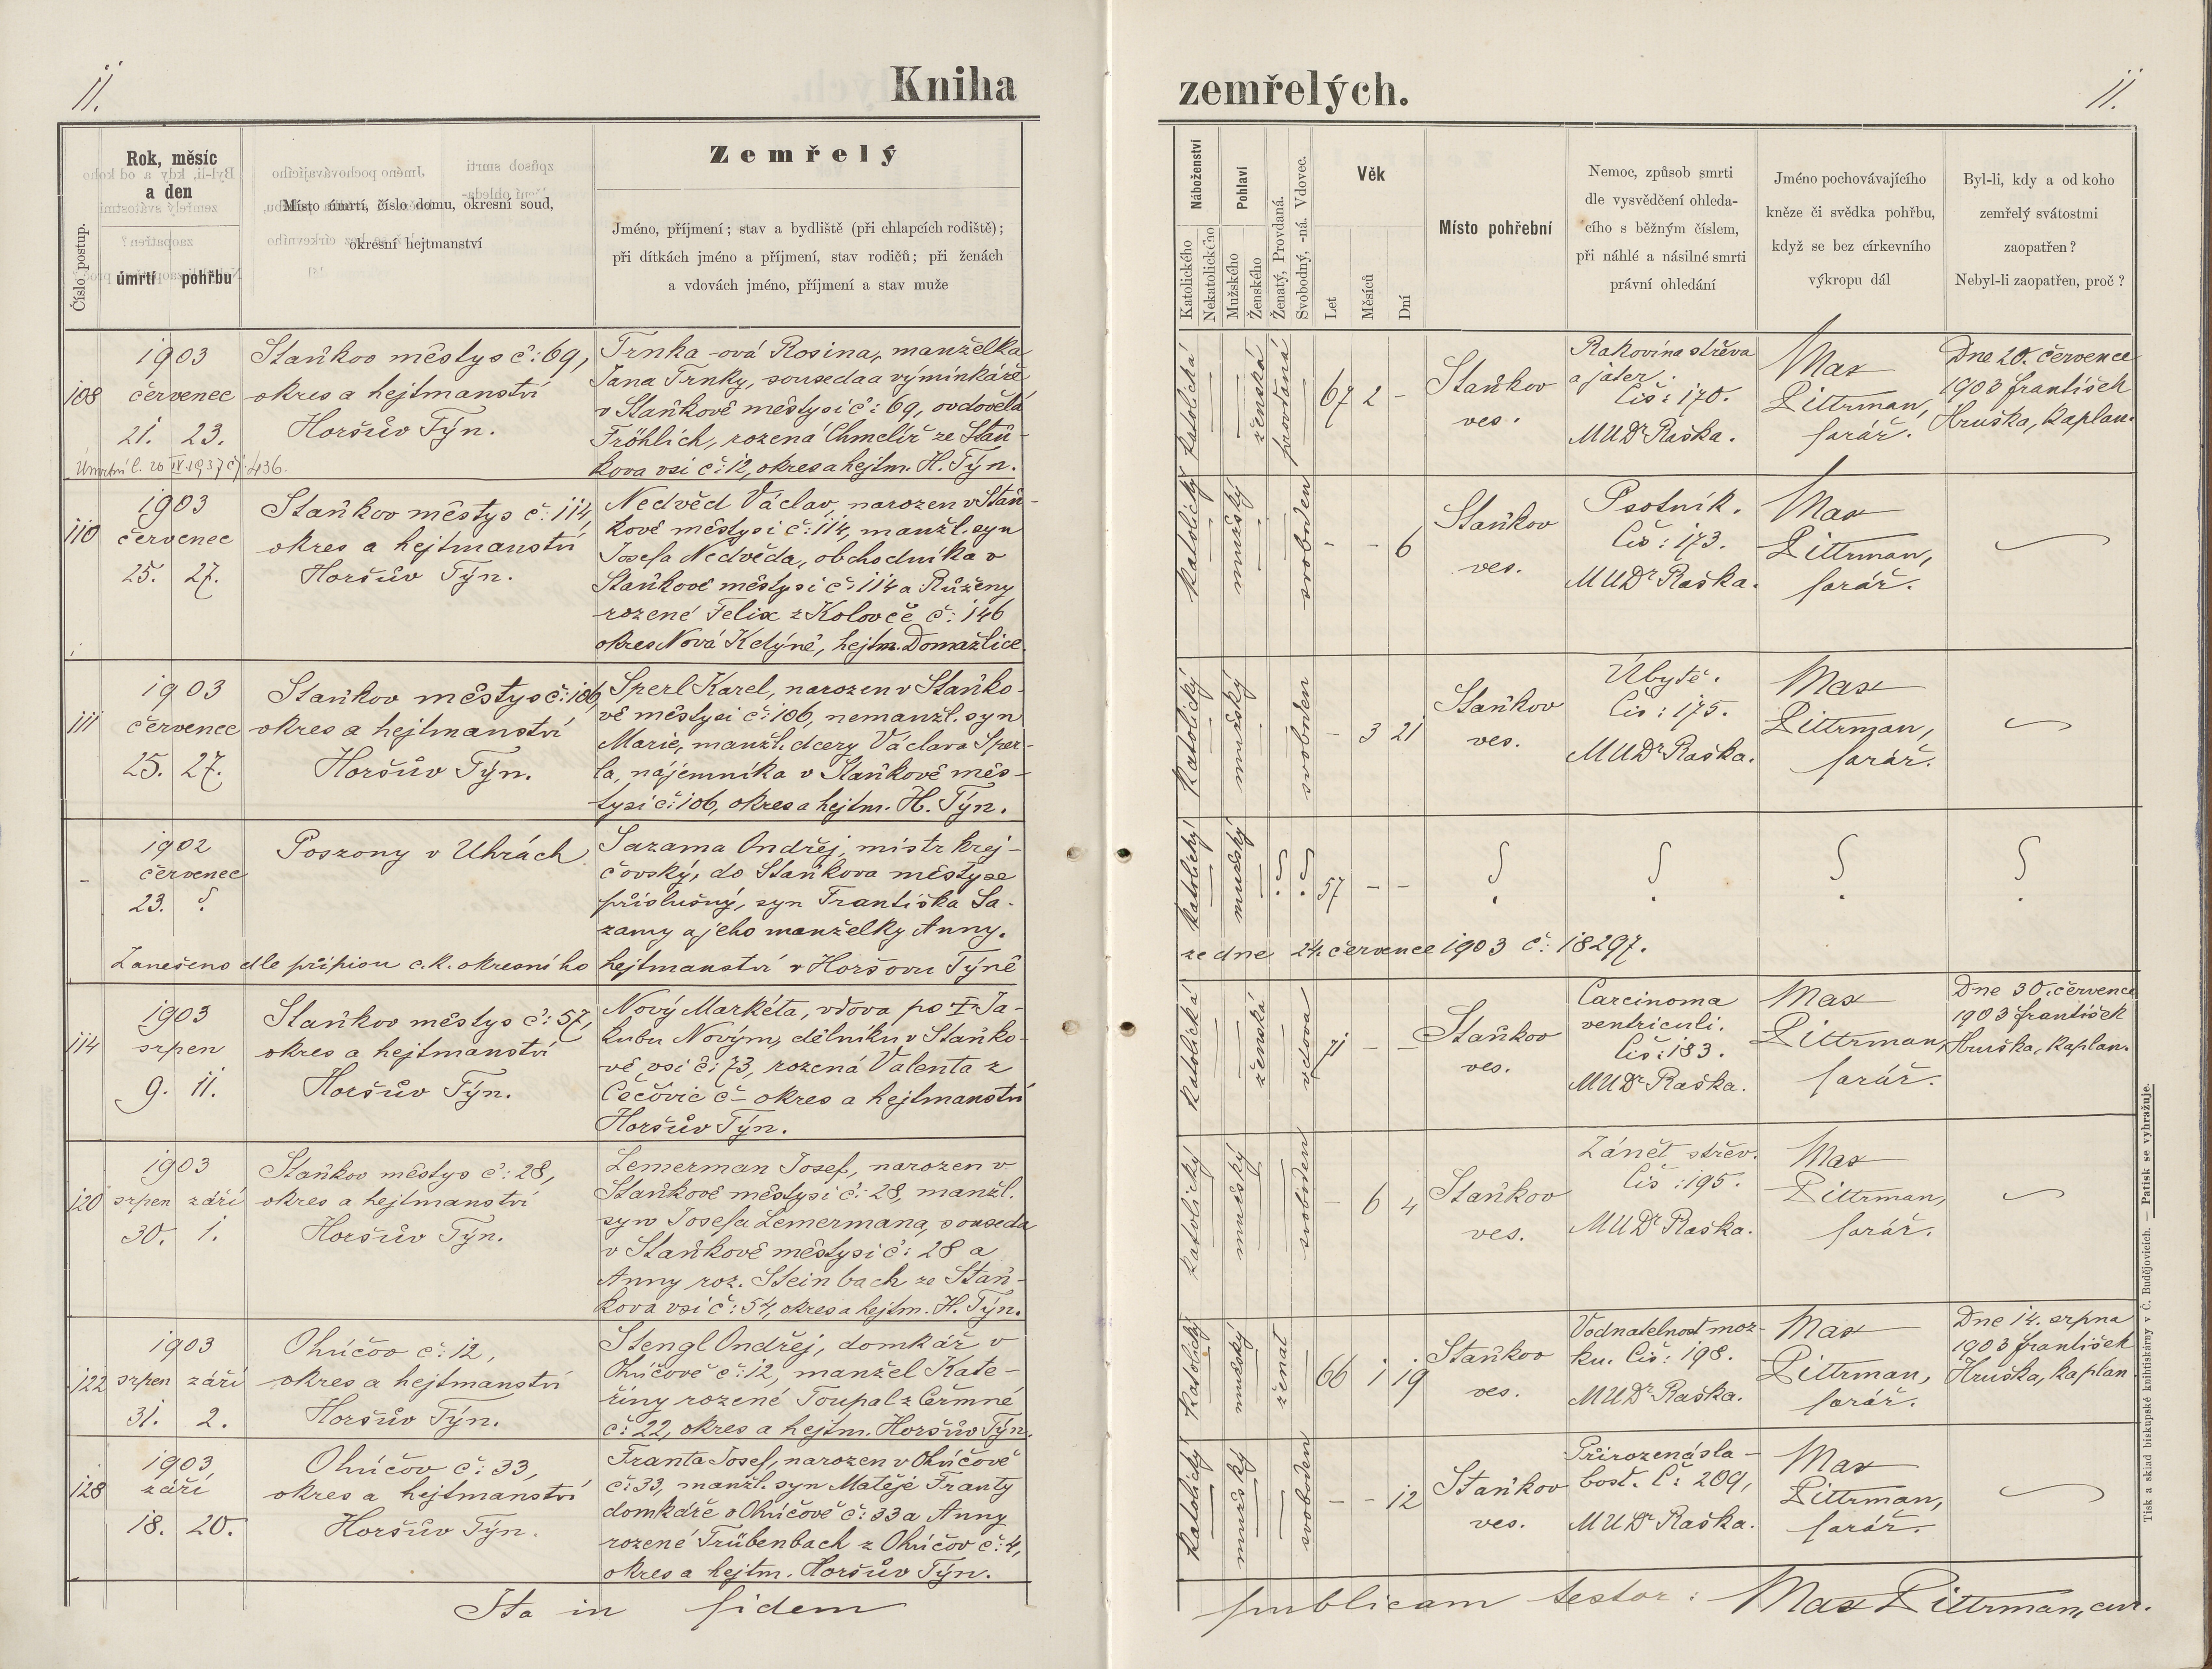 11.
Kniha
zemřelých.
11.
Číslo postup.
Rok, měsíc
a den
úmrtí
pohřbu
Místo úmrtí, číslo domu, okresní soud,
okresní hejtmanství
Zemřelý
Jméno, příjmení; stav a bydliště (při chlapcích rodiště);
při dítkách jméno a příjmení, stav rodičů; při ženách
a vdovách jméno, příjmení a stav muže
Náboženství
Katolického
Nekatolického
Pohlaví
Mužského
Ženského
Ženatý, Provdaná.
Svobodný, -ná. Vdovec.
Věk
Let
Měsíců
Dní
Místo pohřební
Nemoc, způsob smrti
dle vysvědčení ohleda-
cího s běžným číslem,
při náhlé a násilné smrti
právní ohledání
Jméno pochovávajícího
kněze či svědka pohřbu,
když se bez církevního
výkropu dál
Byl-li, kdy a od koho
zemřelý svátostmi
zaopatřen?
Nebyl-li zaopatřen, proč?
108
1903
červenec
21. 23.
Úmrtní l. 20 IV. 1937 čj: 436.
Staňkov městys č: 69,
okres a hejtmanství
Horšův Týn.
Trnka -ová Rosina, manželka
Jana Trnky, souseda a výminkáře
v Staňkově městysi č: 69, ovdovělá
Fröhlich, rozená Chmelíř ze Staň-
kova vsi č: 12, okres a hejtm. H. Týn.
katolická
ženská
provdaná
67 2 -
Staňkov
ves.
Rakovina střeva
a jater.
Čís: 170.
MUDr Raška.
Max
Pittrman,
farář.
Dne 20. července
1903 František
Hruška, kaplan.
110
1903
červenec
25. 27.
Staňkov městys č: 114,
okres a hejtmanství
Horšův Týn.
Nedvěd Václav, narozen v Staň-
kově městysi č: 114, manžl. syn
Josefa Nedvěda, obchodníka v
Staňkově městysi č: 114 a Růženy
rozené Felix z Koloveč č: 146
okres Nová Kedýně, hejtm. Domažlice.
katolický
mužský
svoboden
- - 6
Staňkov
ves.
Psotník.
Čís: 173.
MUDr Raška.
Max
Pittrman,
farář.
111
1903
červenec
25. 27.
Staňkov městys č: 106,
okres a hejtmanství
Horšův Týn.
Sperl Karel, narozen v Staňko-
vě městysi č: 106, nemanžl. syn
Marie, manžl. dcery Václava Sper-
la, nájemníka v Staňkově měs-
tysi č: 106, okres a hejtm. H. Týn.
katolický
mužský
svoboden
- 3 21
Staňkov
ves.
Úbytě.
Čís: 175.
MUDr Raška.
Max
Pittrman,
farář.
-
1902
červenec
23. ?
Poszony v Uhrách
Sazama Ondřej, mistr krej-
čovský, do Staňkova městyse
příslušný, syn Františka Sa-
zamy a jeho manželky Anny.
katolický
mužský
? ?
57 - -
? ? ? ?
Zanešeno dle přípisu c. k. okresního hejtmanství v Horšovu Týně
ze dne 24. července 1903 č: 18297.
114
1903
srpen
9. 11.
Staňkov městys č: 57,
okres a hejtmanství
Horšův Týn.
Nový Markéta, vdova po † Ja-
kubu Novým, dělníku v Staňko-
vě vsi č: 73, rozená Valenta z
Čečovic č - okres a hejtmanství
Horšův Týn.
katolická
ženská
vdova
71 - -
Staňkov
ves.
Carcinoma
ventriculi.
Čís: 183.
MUDr Raška.
Max
Pittrman,
farář.
Dne 30. července
1903 František
Hruška, kaplan.
120
1903
srpen září
30. 1.
Staňkov městys č: 28,
okres a hejtmanství
Horšův Týn.
Lemerman Josef, narozen v
Staňkově městysi č: 28, manžl.
syn Josefa Lemermana, souseda
v Staňkově městysi č: 28 a
Anny roz. Steinbach ze Staň-
kova vsi č: 54, okres a hejtm. H. Týn.
katolický
mužský
svoboden
- 6 4
Staňkov
ves.
Zánět střev.
Čís: 195.
MUDr Raška.
Max
Pittrman,
farář.
122
1903
srpen září
31. 2.
Ohúčov č: 12,
okres a hejtmanství
Horšův Týn.
Stengl Ondřej, domkář v
Ohúčově č: 12, manžel Kate-
řiny rozené Toupal z Čermné
č: 22, okres a hejtm. Horšův Týn.
katolický
mužský
ženat
66 1 19
Staňkov
ves.
Vodnatelnost moz-
ku. Čís: 198.
MUDr Raška.
Max
Pittrman,
farář.
Dne 14. srpna
1903 František
Hruška, kaplan
128
1903
září
18. 20.
Ohúčov č: 33,
okres a hejtmanství
Horšův Týn.
Franta Josef, narozen v Ohúčově
č: 33, manžl. syn Matěje Franty
domkáře v Ohúčově č: 33 a Anny
rozené Trübenbach z Ohúčov č: 4,
okres a hejtm. Horšův Týn.
katolický
mužský
svoboden
- - 12
Staňkov
ves.
Přirozená sla-
bost. Č: 209,
MUDr Raška.
Max
Pittrman,
farář.
Ita in fidem publicam testor: Max Pittrman, cur.
Tisk a sklad biskupské knihtiskárny v Č. Budějovicích. — Patisk se vyhražuje.